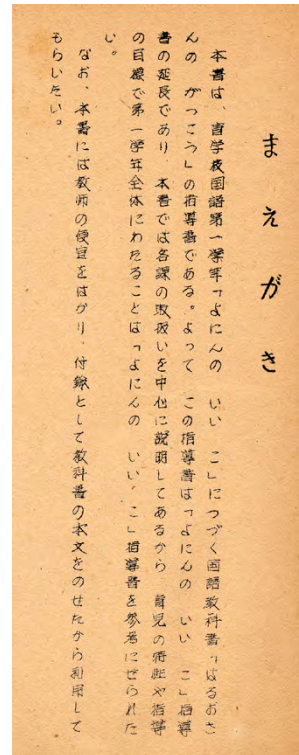 まえがき
本書は、盲学校国語第一学年「よにんの　いい　こ」につづく国語教科書「はるおさ
んの　がっこう」の指導書である。よって　この指導書は「よにんの　いい　こ」指導
書の延長であり　本書では各課の取扱いを中心に説明してあるから　盲児の特性や指導
の目標で第一学年全体にわたることは「よにんの　いい　こ」指導書を参考にせられた
い。
なお、本書には教師の便宜をはかり、付録として教科書の本文をのせたから利用して
もらいたい。